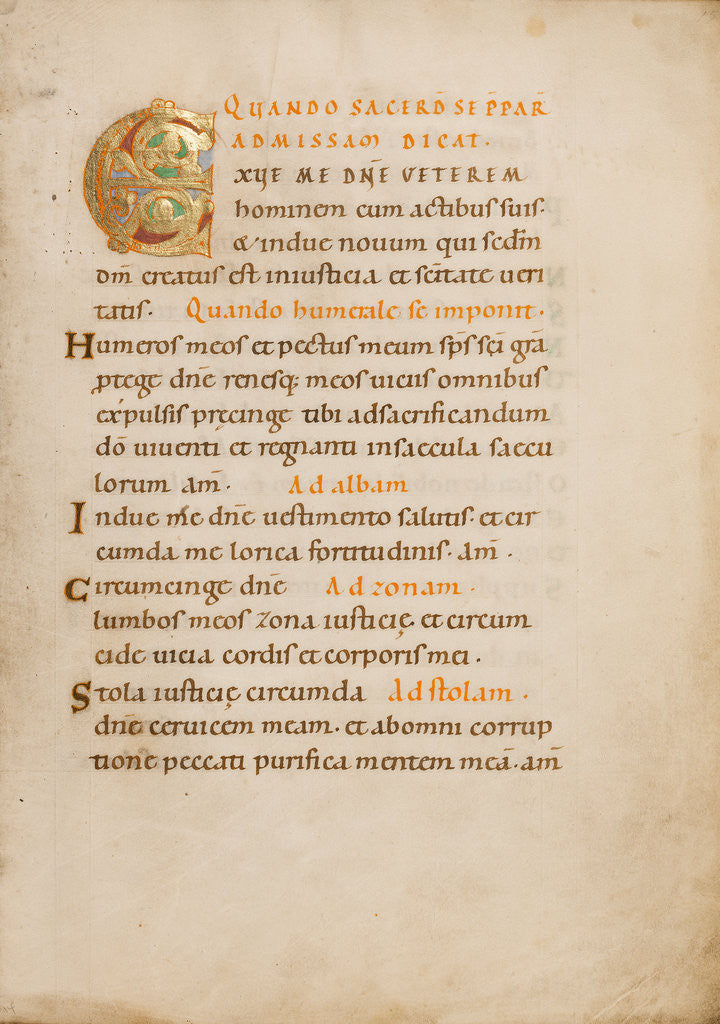 QUANDO SACERD SE PPAR
AD MISSAM DICAT.
EXUE ME DNE VETEREM
hominem cum actibus suis.
& indue nouum qui scdm
dm creatus est iniusticia et scitate ueri
tatis. Quando humerale se imponit.
Humeros meos et pectus meum sps sci gra
ptege dne renesq; meos uiciis omnibus
expulsis precinge tibi adsacrificandum
do uiuenti et regnanti insaecula saecu
lorum am. Ad albam
Indue me dne uestimento salutis. et cir
cumda me lorica fortitudinis. am.
Circumcinge dne Ad zonam.
lumbos meos zona iusticię et circum
cide uicia cordis et corporis mei.
Stola iusticię circumda Ad stolam.
dne ceruicem meam. et abomni corrup
tione peccati purifica mentem meā. am